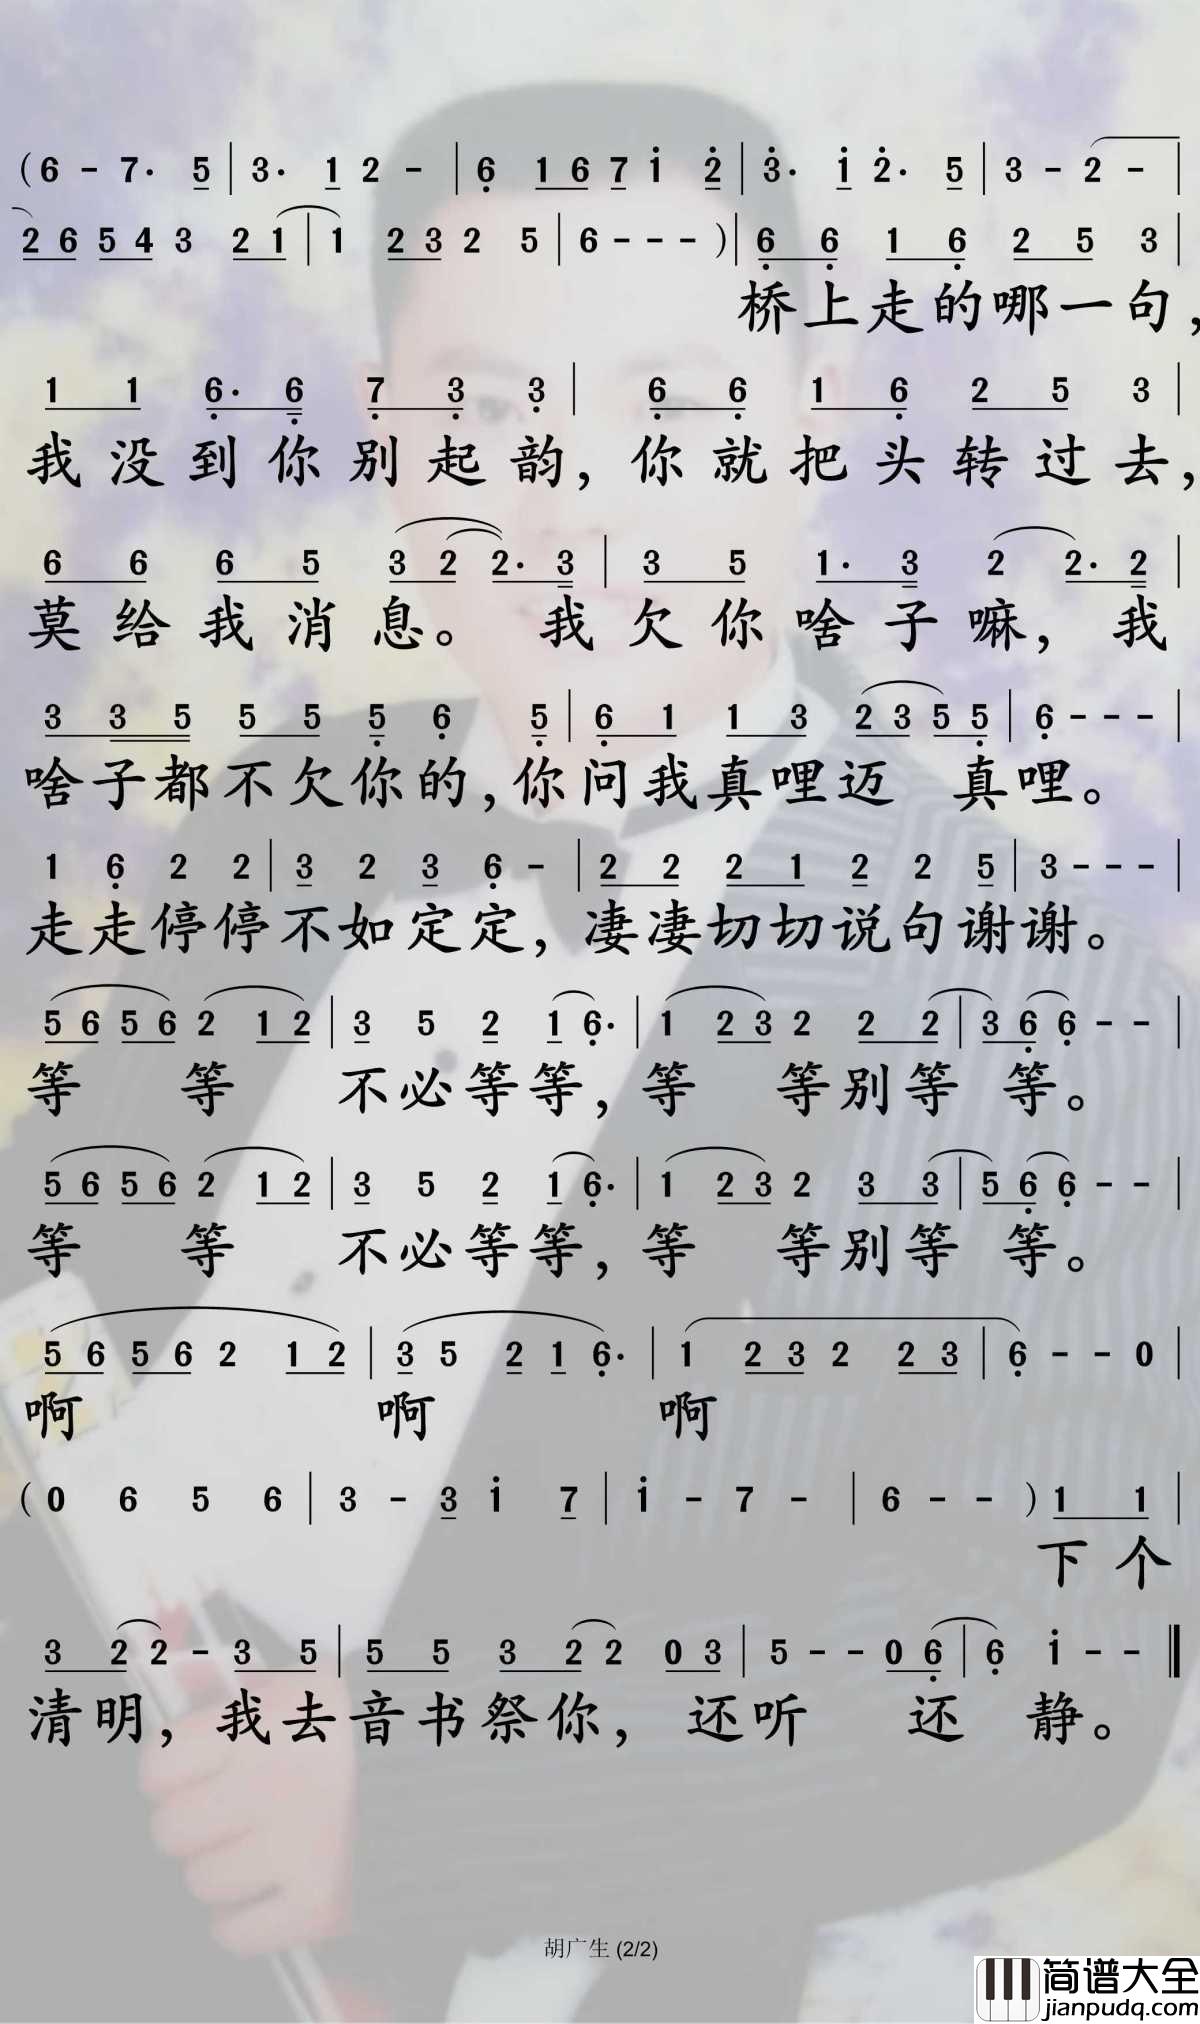 ( 6 - 7. 5 | 3. 1 2 - | 6 1 6 7 1 2 | 3. 1 2. 5 | 3 - 2 - |
2 6 5 4 3 2 1 | 1 2 3 2 5 | 6 - - - ) | 6 6 1 6 2 5 3 |
桥上走的哪一句，
1 1 6. 6 7 3 3 | 6 6 1 6 2 5 3 |
我没到你别起韵，你就把头转过去，
6 6 6 5 3 2 2. 3 | 3 5 1. 3 2 2. 2 |
莫给我消息。我欠你啥子嘛，我
3 3 5 5 5 5 6 5 | 6 1 1 3 2 3 5 5 | 6 - - - |
啥子都不欠你的，你问我真哩迈 真哩。
1 6 2 2 | 3 2 3 6 - | 2 2 2 1 2 2 5 | 3 - - - |
走走停停不如定定，凄凄切切说句谢谢。
5 6 5 6 2 1 2 | 3 5 2 1 6. | 1 2 3 2 2 2 | 3 6 6 - - |
等 等 不必等等，等 等别等 等。
5 6 5 6 2 1 2 | 3 5 2 1 6. | 1 2 3 2 3 3 | 5 6 6 - - |
等 等 不必等等，等 等别等 等。
5 6 5 6 2 1 2 | 3 5 2 1 6. | 1 2 3 2 2 3 | 6 - - 0 |
啊 啊 啊
( 0 6 5 6 | 3 - 3 1 7 | 1 - 7 - | 6 - - ) 1 1 |
下个
3 2 2 - 3 5 | 5 5 3 2 2 0 3 | 5 - - 0 6 | 6 1 - - ‖
清明，我去音书祭你，还听 还 静。
胡广生 (2/2)
简谱大全
jianpudq.com